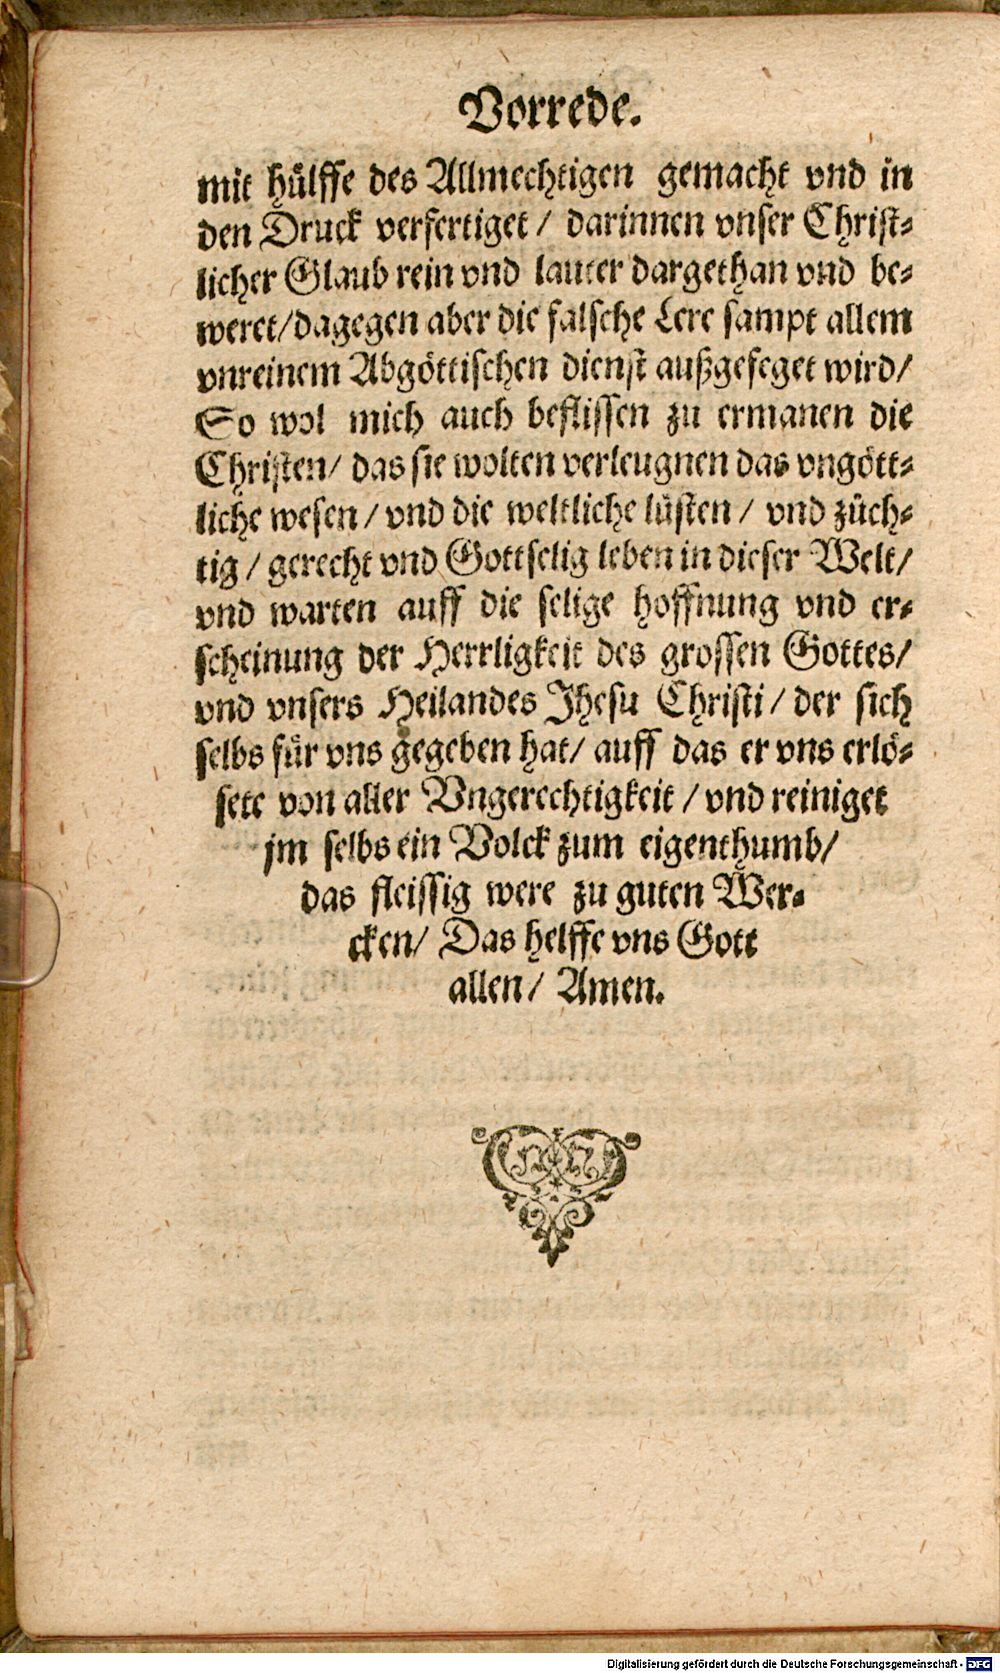 Vorrede.
mit hülffe des Allmechtigen gemacht vnd in
den Druck verfertiget / darinnen vnser Christ-
licher Glaub rein vnd lauter dargethan vnd be-
weret/dagegen aber die falsche Lere sampt allem
vnreinem Abgöttischen dienst außgefeget wird/
So wol mich auch beflissen zu ermanen die
Christen/ das sie wolten verleugnen das vngött-
liche wesen / vnd die weltliche lüsten / vnd züch-
tig / gerecht vnd Gottselig leben in dieser Welt/
vnd warten auff die selige hoffnung vnd er-
scheinung der Herrligkeit des grossen Gottes/
vnd vnsers Heilandes Jhesu Christi / der sich
selbs für vns gegeben hat/ auff das er vns erlö-
sete von aller Vngerechtigkeit / vnd reiniget
jm selbs ein Volck zum eigenthumb/
das fleissig were zu guten Wer-
cken/ Das helffe vns Gott
allen/ Amen.
Digitalisierung gefördert durch die Deutsche Forschungsgemeinschaft - DFG